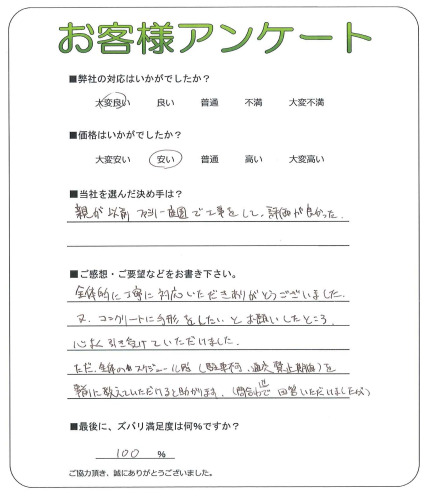 お客様アンケート
■弊社の対応はいかがでしたか？
大変良い 良い 普通 不満 大変不満
■価格はいかがでしたか？
大変安い 安い 普通 高い 大変高い
■当社を選んだ決め手は？
親が以前ファミリー庭園で工事をして、評価が良かった。
■ご感想・ご要望などをお書き下さい。
全体的に丁寧に対応いただきありがとうございました。
又、コンクリートに手形をしたいとお願いしたところ、
心よく引き受けていただけました。
ただ、全体のスケジュール感（駐車不可、通交禁止期間）を
事前に教えていただけると助かります。（問合わせで回答いただけましたが）
■最後に、ズバリ満足度は何％ですか？
100 ％
ご協力頂き、誠にありがとうございました。